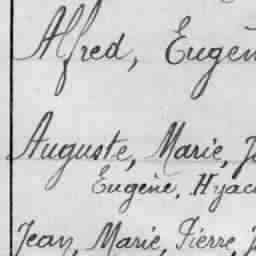 Alfred, Eugèn
Auguste, Marie, J
Eugène, Hyac
Jean, Marie, Pierre, J